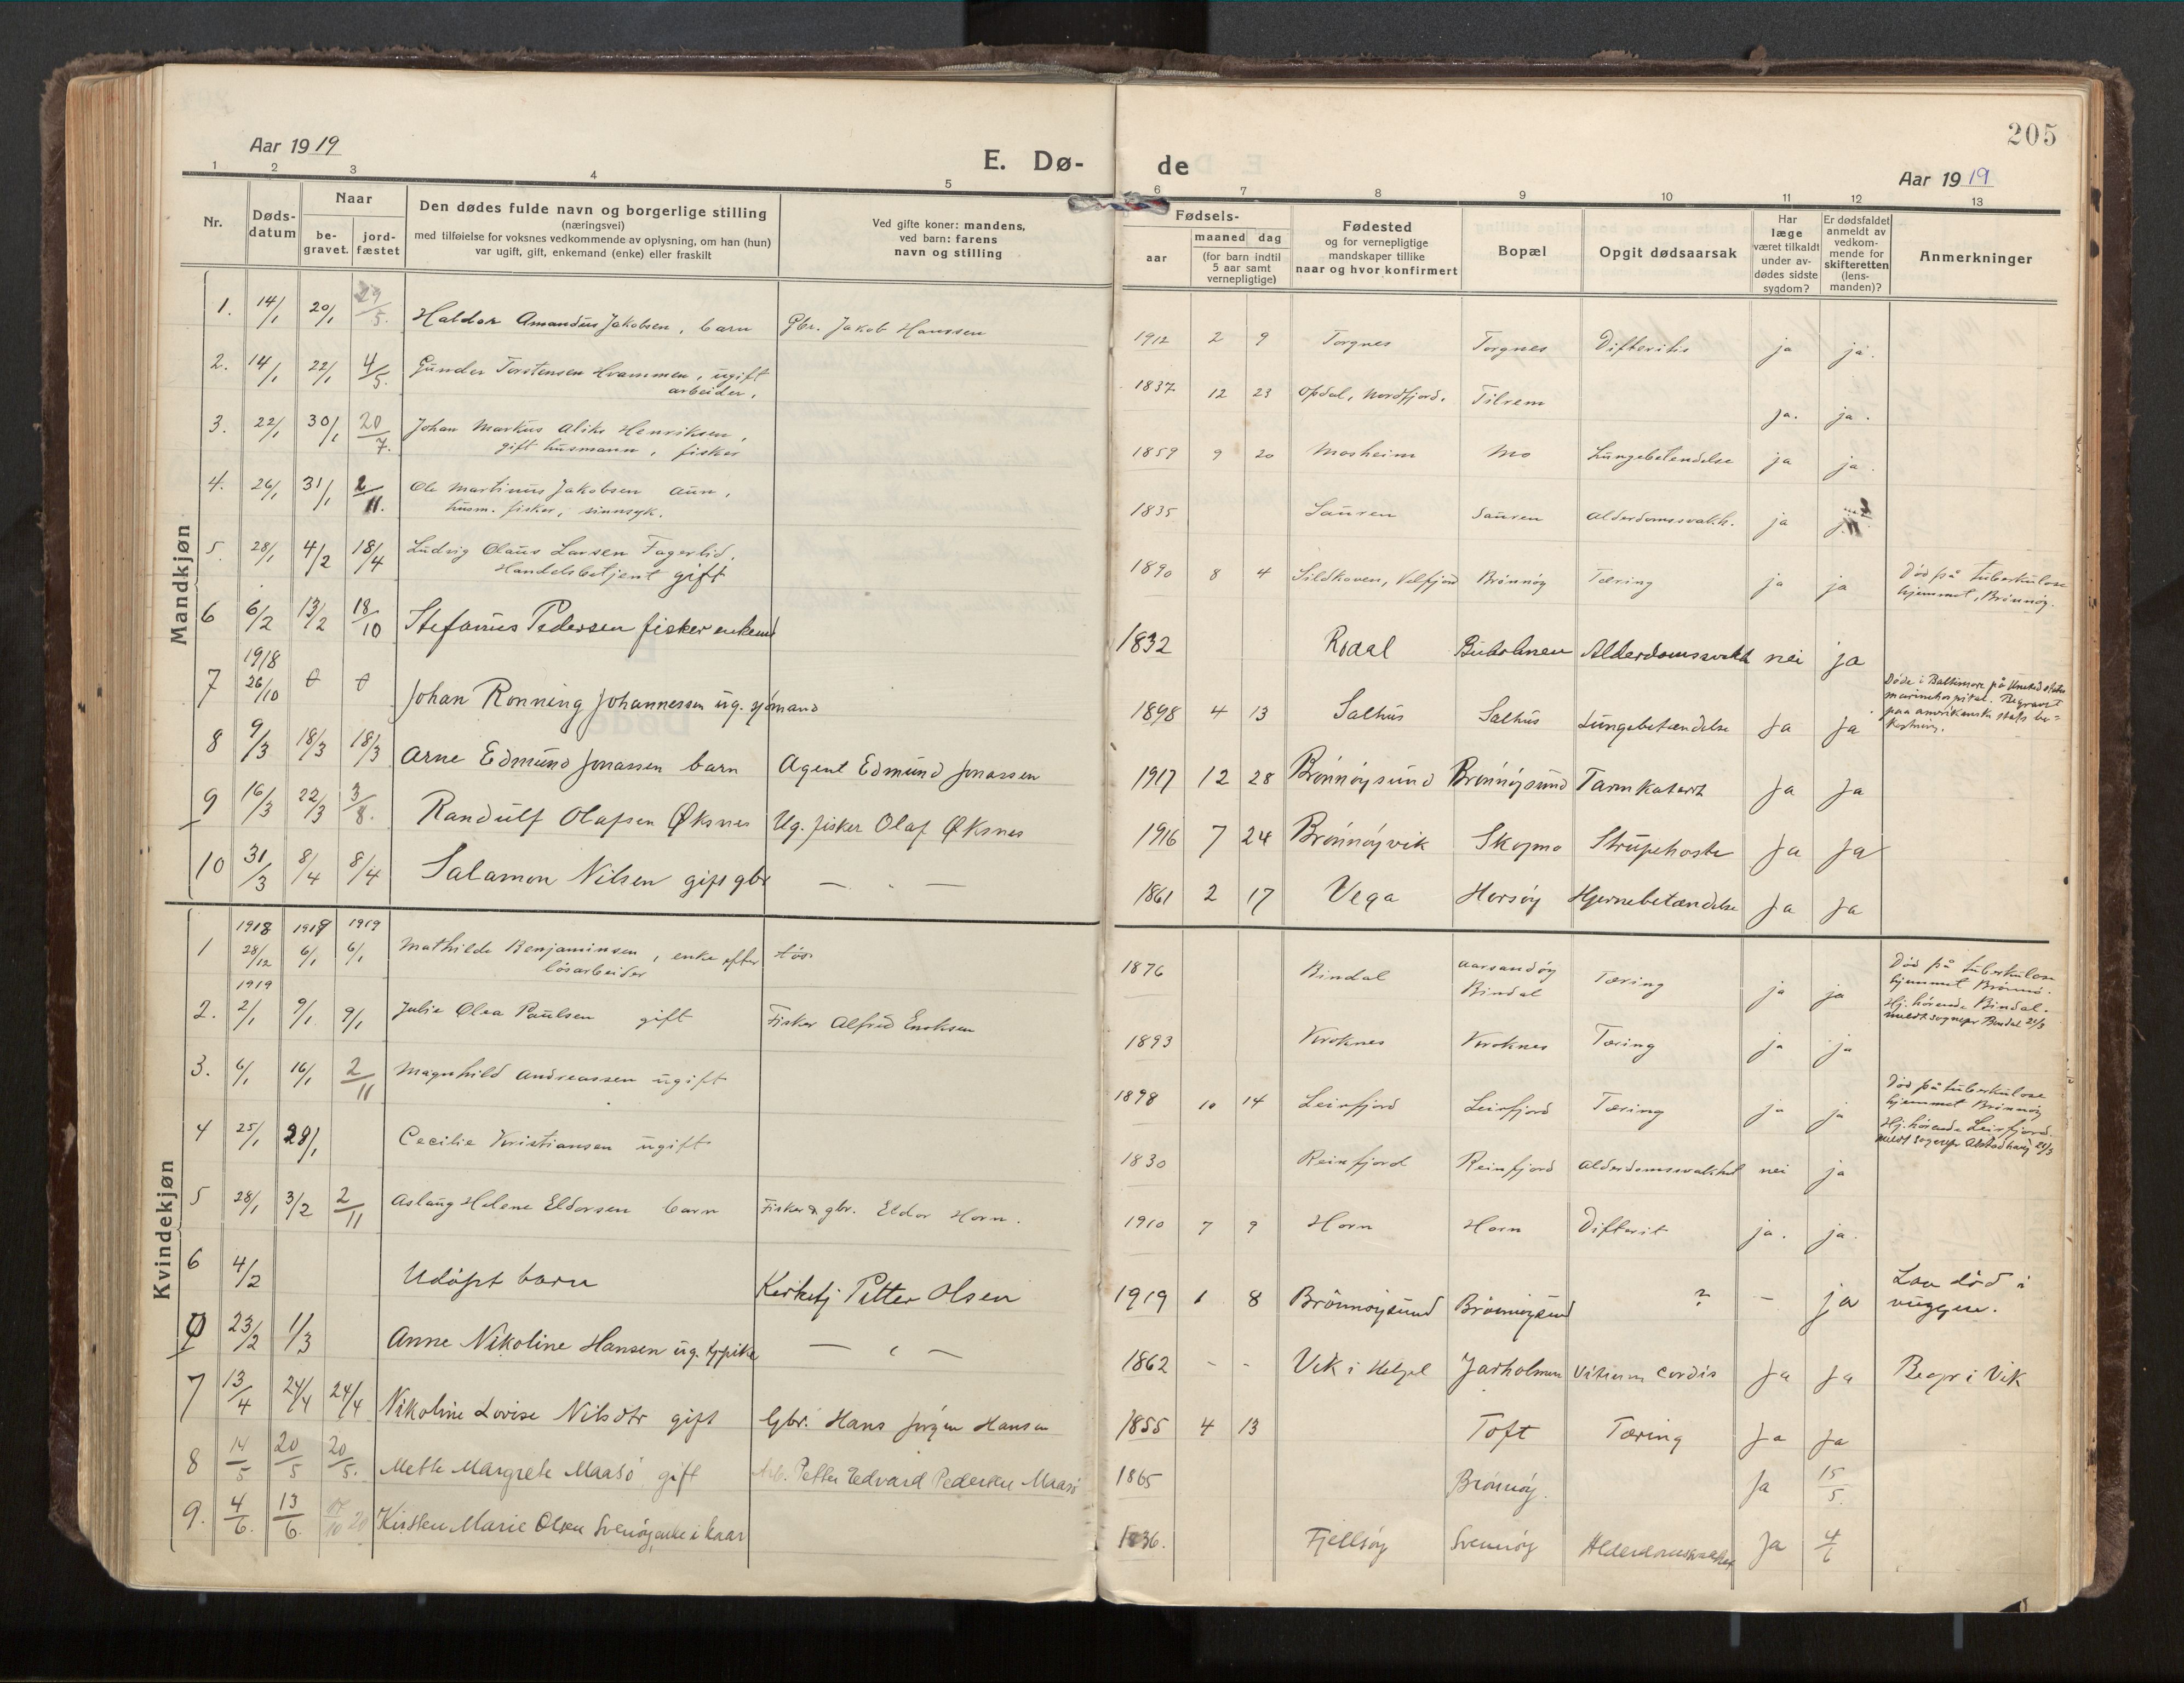 205
Aar 1919
E. Dø-
de
Aar 1919
1 2 3 4 5 6 7 8 9 10 11 12 13
Nr.
Døds-
datum
Naar
be-
gravet.
jord-
fæstet
Den dødes fulde navn og borgerlige stilling
(næringsvei)
med tilføielse for voksnes vedkommende av oplysning, om han (hun)
var ugift, gift, enkemand (enke) eller fraskilt
Ved gifte koner: mandens,
ved barn: farens
navn og stilling
Fødsels-
aar
maaned dag
(for barn indtil
5 aar samt
vernepligtige)
Fødested
og for vernepligtige
mandskaper tillike
naar og hvor konfirmert
Bopæl
Opgit dødsaarsak
Har
læge
været tilkaldt
under av-
dødes sidste
sygdom?
Er dødsfaldet
anmeldt av
vedkom-
mende for
skifteretten
(lens-
manden)?
Anmerkninger
Mandkjøn
1. 14/1 20/1 29/5. Haldor Amandus Jakobsen, barn Gbr. Jakob Hanssen 1912 2 9 Torgnes Torgnes Difteritis ja ja.
2. 14/1 22/1 4/5. Gunder Torstensen Hvammen, ugift
arbeider, 1837 12 23 Opdal, Nordfjord. Tilrem ja. ja.
3. 22/1 30/1 20/7. Johan Markus Aliks Henriksen,
gift husmann, fisker 1859 9 20 Mosheim Mo Lungebetendelse ja ja.
4. 26/1 31/1 2/11. Ole Martinus Jakobsen Aun,
husm. fisker, sinnsyk. 1835 Sauren Sauren Alderdomssvakh. ja
5. 28/1 4/2 18/4 Ludvig Olaus Larsen Fagerlid,
Handelsbetjent gift 1890 8 4 Sildhaven, Velfjord Brönnöy Tæring ja ja Död på tuberkulose
hjemmet, Brönnöy.
6 6/2 13/2 18/10 Stefanus Pedersen fisker enkemd 1832 Rodal Buholmen Alderdomssvakh nei ja
7 1918
26/10 Johan Ronning Johannessen ug. sjömand 1898 4 13 Salhus Salhus Lungebetændelse Ja Ja Döde i Baltimore på United states
marinehospital. Begravet
paa amerikansk stats be-
kostning.
8 9/3 18/3 18/3 Arne Edmund Jonassen barn Agent Edmund Jonassen 1917 12 28 Brönnöysund Brönnöysund Tarmkatarrh Ja Ja
9 16/3 22/3 3/8. Randulf Olafsen Øksnes Ug. fisker Olaf Øksnes 1916 7 24 Brönnöyvik Skogmo Strupehoste Ja Ja
10 31/3 8/4 8/4 Salamon Nilsen gift gbr — „ — 1861 2 17 Vega Horsöy Hjernebetændelse Ja Ja
Kvindekjøn
1 1918 1919 1919
28/12 6/1 6/1 Mathilde Benjaminsen, enke efter
lösarbeider 1876 Bindal Aarsandöy
Bindal Tæring ja ja Död på tuberkulose
hjemmet Brönnö.
Hj. hörende Bindal.
meldt sognepr Bindal 21/3
1919
2. 2/1 9/1 9/1 Julie Olea Paulsen gift Fisker Alfred Enoksen 1893 Kroknes Kroknes Tæring ja ja
3. 6/1 16/1 2/11 Magnhild Andreassen ugift 1898 10 14 Leirfjord Leirfjord Tæring ja ja Död på tuberkulose
hjemmet Brönnöy
Hj. hörende Leirfjord
meldt sognepr Alstadhaug 21/3
4 25/1 28/1 Cecilie Kristiansen ugift 1830 Reinfjord Reinfjord Alderdomssvakhet nei ja
5 28/1 3/2 2/11 Aslaug Helene Eldorsen barn Fisker & gbr. Eldor Horn. 1910 7 9 Horn Horn Difterit ja. ja.
6 4/2 Udöpt barn Kirketj Petter Olsen 1919 1 8 Brönnöysund Brönnöysund ? – ja Laa död i
vuggen.
23/2 1/3 Anne Nikoline Hansen ug. — „ — 1862 - - Vik i Helgel Jarholmen Vitium Cordis Ja Ja Begr i Vik
7 13/4 24/4 24/4 Nikoline Lovise Nilsdtr gift Gbr. Hans Jörgen Hansen 1855 4 13 Toft Tæring Ja Ja
8 14/5 20/5 20/5. Mette Margrete Maasö gift Arb. Petter Edvard Pedersen Maasö 1865 Brönnöy. Ja 15/5.
9. 4/6. 13/6. 17/10 20 Kirsten Marie Olsen Svenöy, enke i kaar 1836. Fjellsöy Svennöy Alderdomssvakhet Ja 4/6